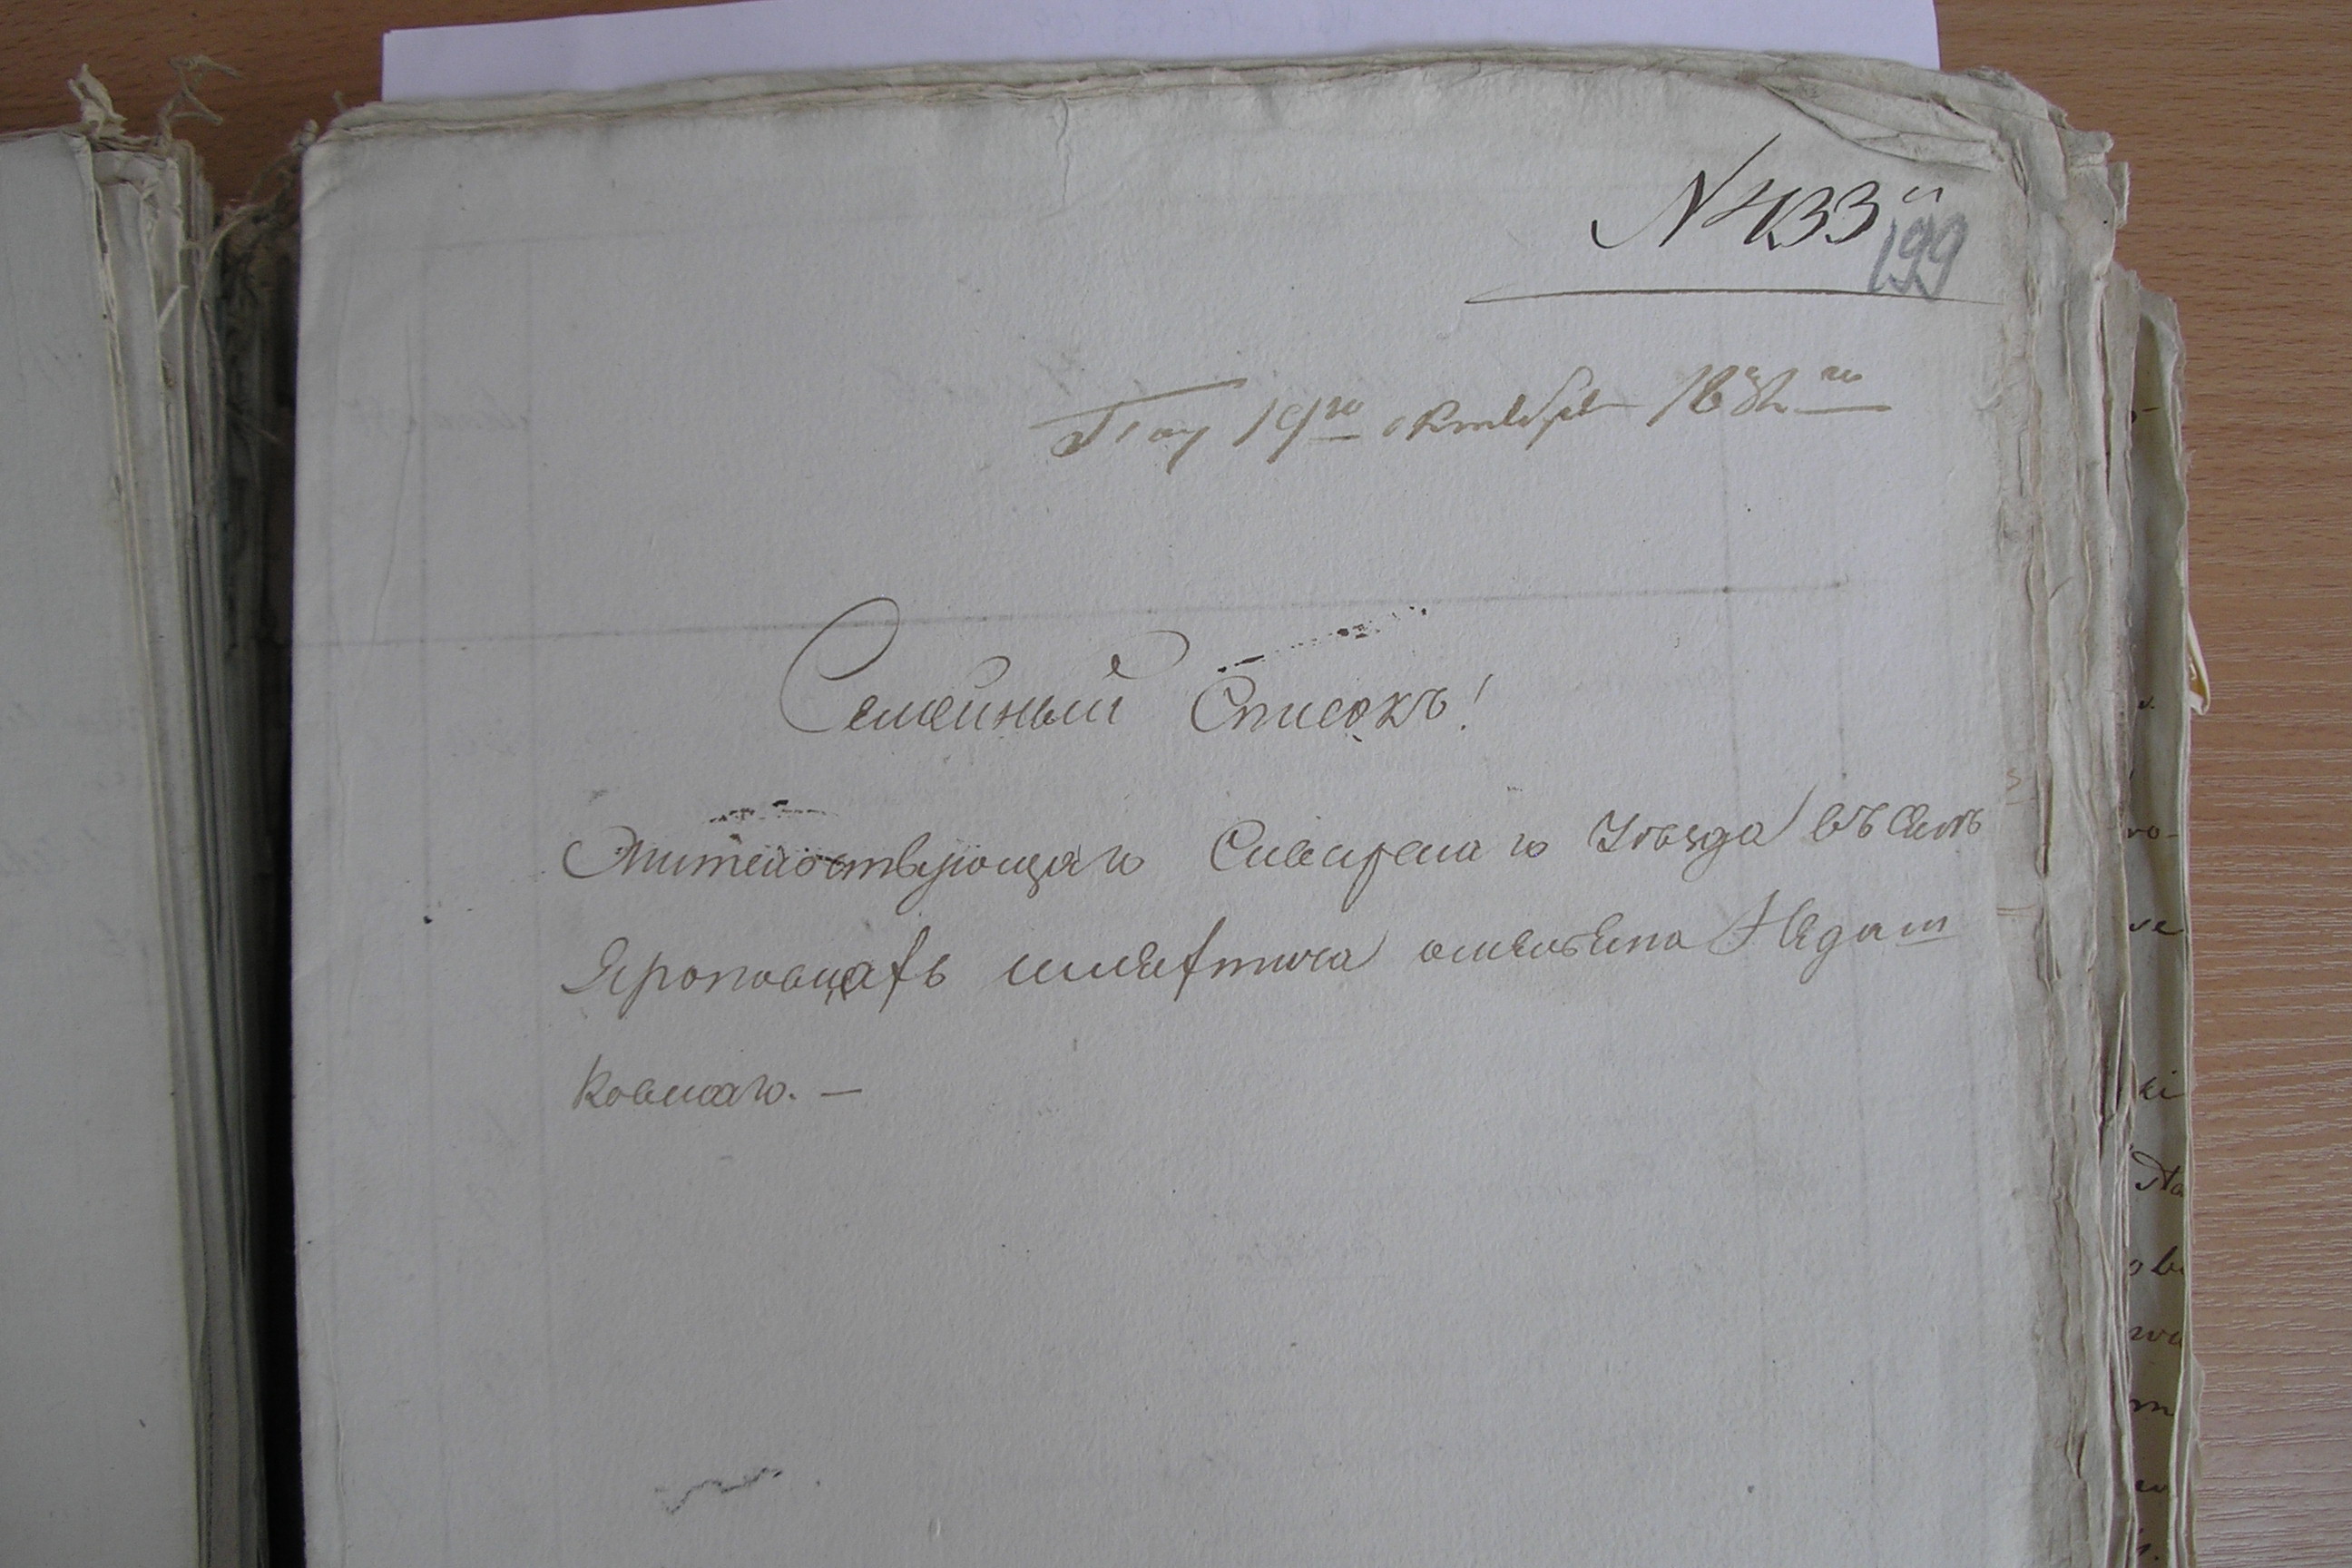 № 433й
199
Пол 19го октября 1832го
Семейный Списокъ!
Жительствующаго Сквирскаго Уѣзда въ Селѣ
Яроповцахъ шляхтича Недаш
ковскаго. —